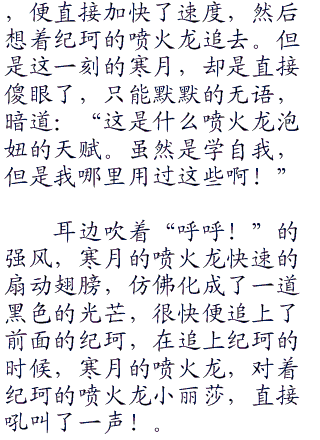 ，便直接加快了速度，然后
想着纪珂的喷火龙追去。但
是这一刻的寒月，却是直接
傻眼了，只能默默的无语，
暗道：“这是什么喷火龙泡
妞的天赋。虽然是学自我，
但是我哪里用过这些啊！”
耳边吹着“呼呼！”的
强风，寒月的喷火龙快速的
扇动翅膀，仿佛化成了一道
黑色的光芒，很快便追上了
前面的纪珂，在追上纪珂的
时候，寒月的喷火龙，对着
纪珂的喷火龙小丽莎，直接
吼叫了一声！。